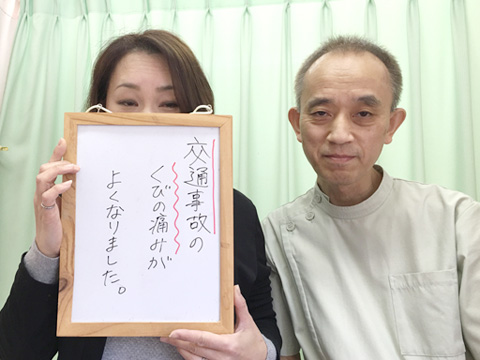 交通事故の
くびの痛みが
よくなりました。